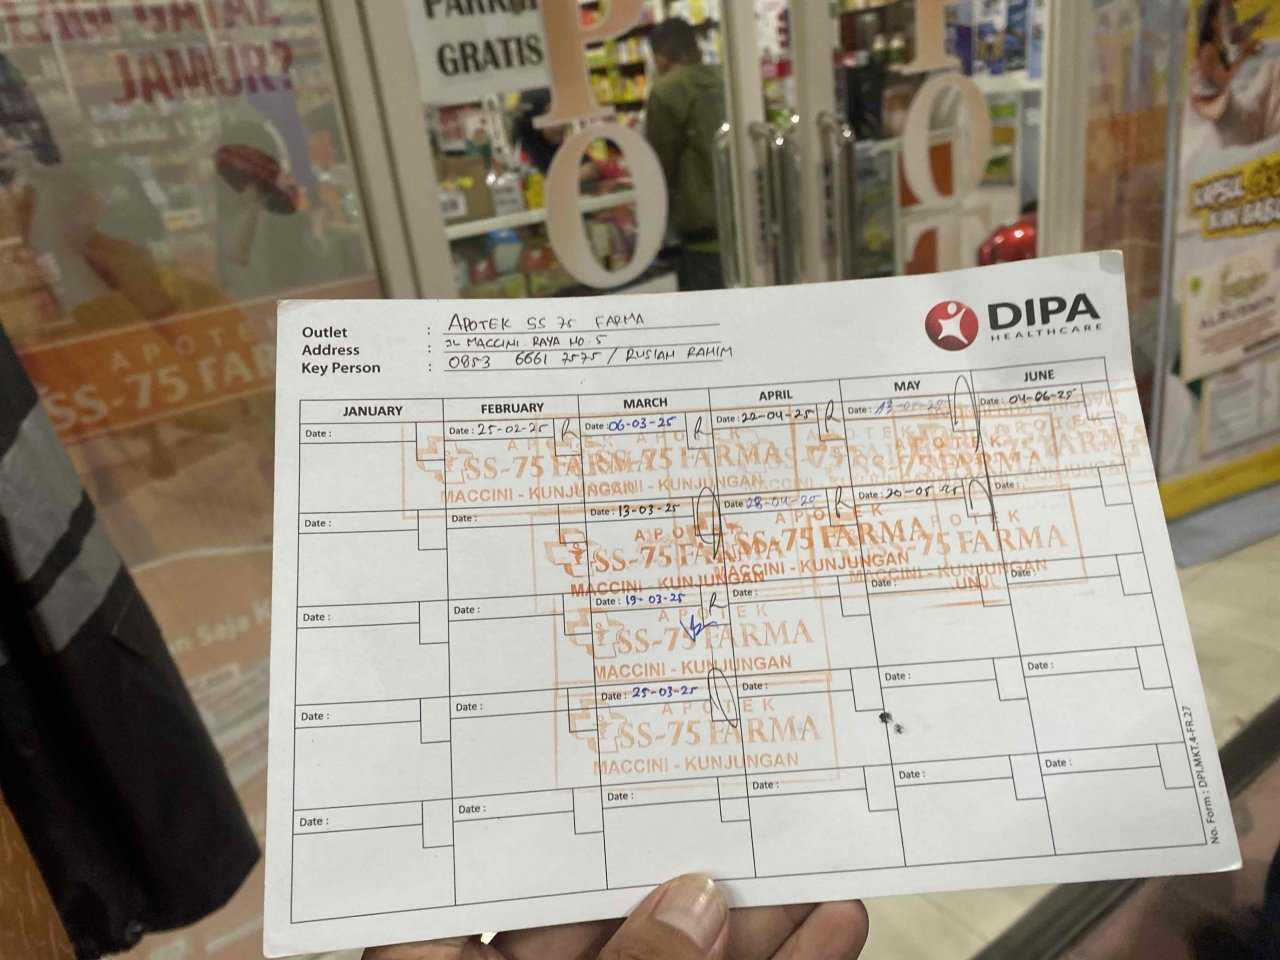 JAMUR?
PARKIR
GRATIS
APOT
SS-75 FAR
Outlet : APOTEK SS 75 FARMA
Address : JL MACCINI RAYA NO.5
Key Person : 0853 6661 7575 / RUSLAN RAHIM
DIPA
HEALTHCARE
JANUARY FEBRUARY MARCH APRIL MAY JUNE
Date : Date : 25-02-25 Date : 06-03-25 Date : 22-04-25 Date : 13-05-25 Date : 04-06-25
APOTEK
SS-75 FARMA
MACCINI - KUNJUNGAN
Date : Date : Date : 13-03-25 Date : 28-04-25 Date : 20-05-25 Date :
APOTEK
SS-75 FARMA
MACCINI - KUNJUNGAN
Date : Date : Date : 19-03-25 Date : Date : Date :
APOTEK
SS-75 FARMA
MACCINI - KUNJUNGAN
Date : Date : Date : 25-03-25 Date : Date : Date :
APOTEK
SS-75 FARMA
MACCINI - KUNJUNGAN
Date : Date : Date : Date : Date : Date :
No. Form : DPLMKT.4-FR.27